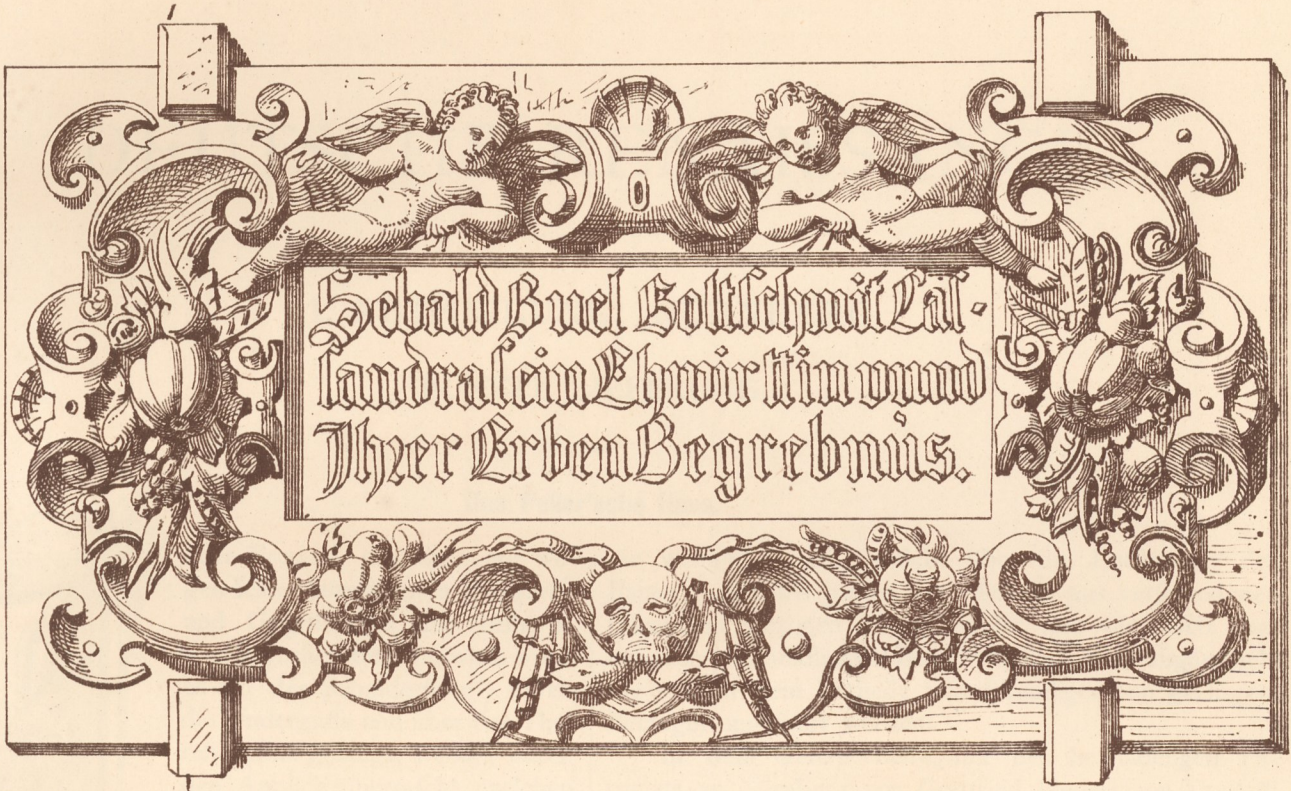 Sebald Buel Goltſchmit Caſ-
ſandra ſein Ehwirttin vnnd
Ihrer Erben Begrebnüs.